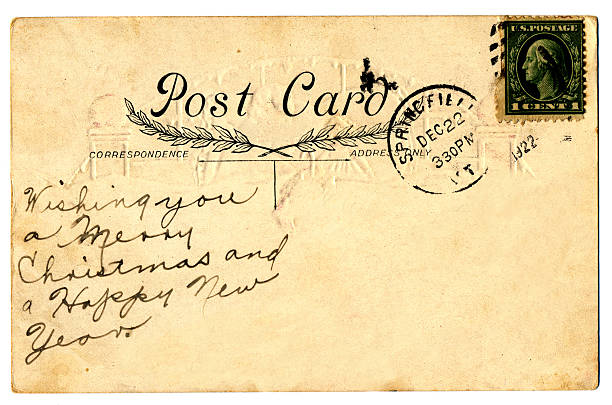 U.S. POSTAGE
1 CENT 1
Post Card
SPRINGFIELD
DEC 22
330 PM
VT
1922
CORRESPONDENCE
ADDRESS ONLY
Wishing you
a Merry
Christmas and
a Happy New
Year.